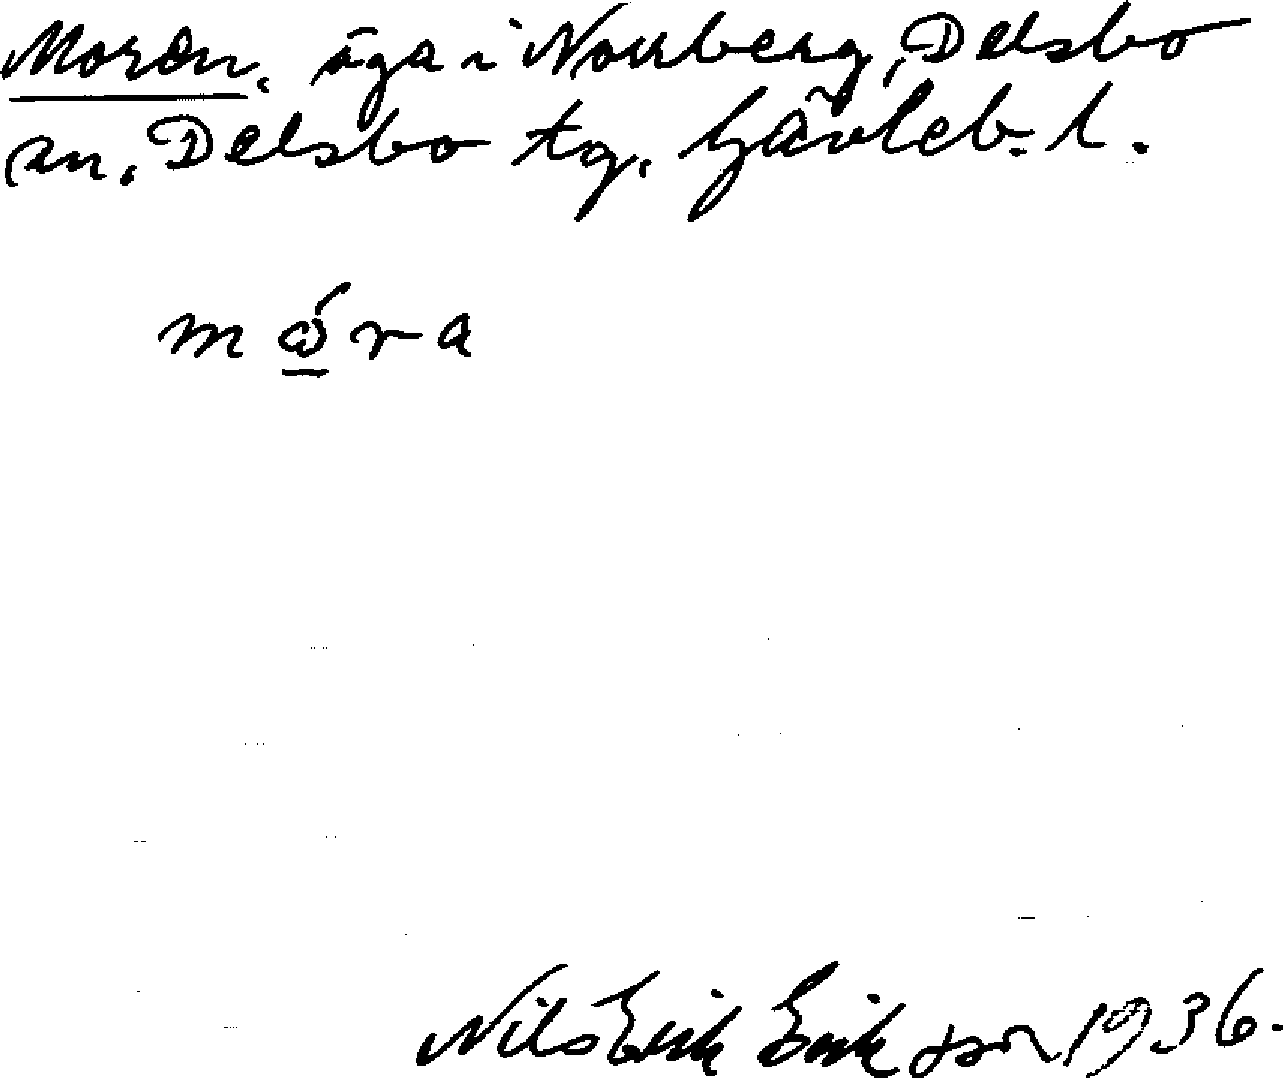 Moron. äga i Norrberg, Delsbo
sn, Delsbo tg. Gävleb. l.
m ώ r a
Nils Erik Eriksson 1936.